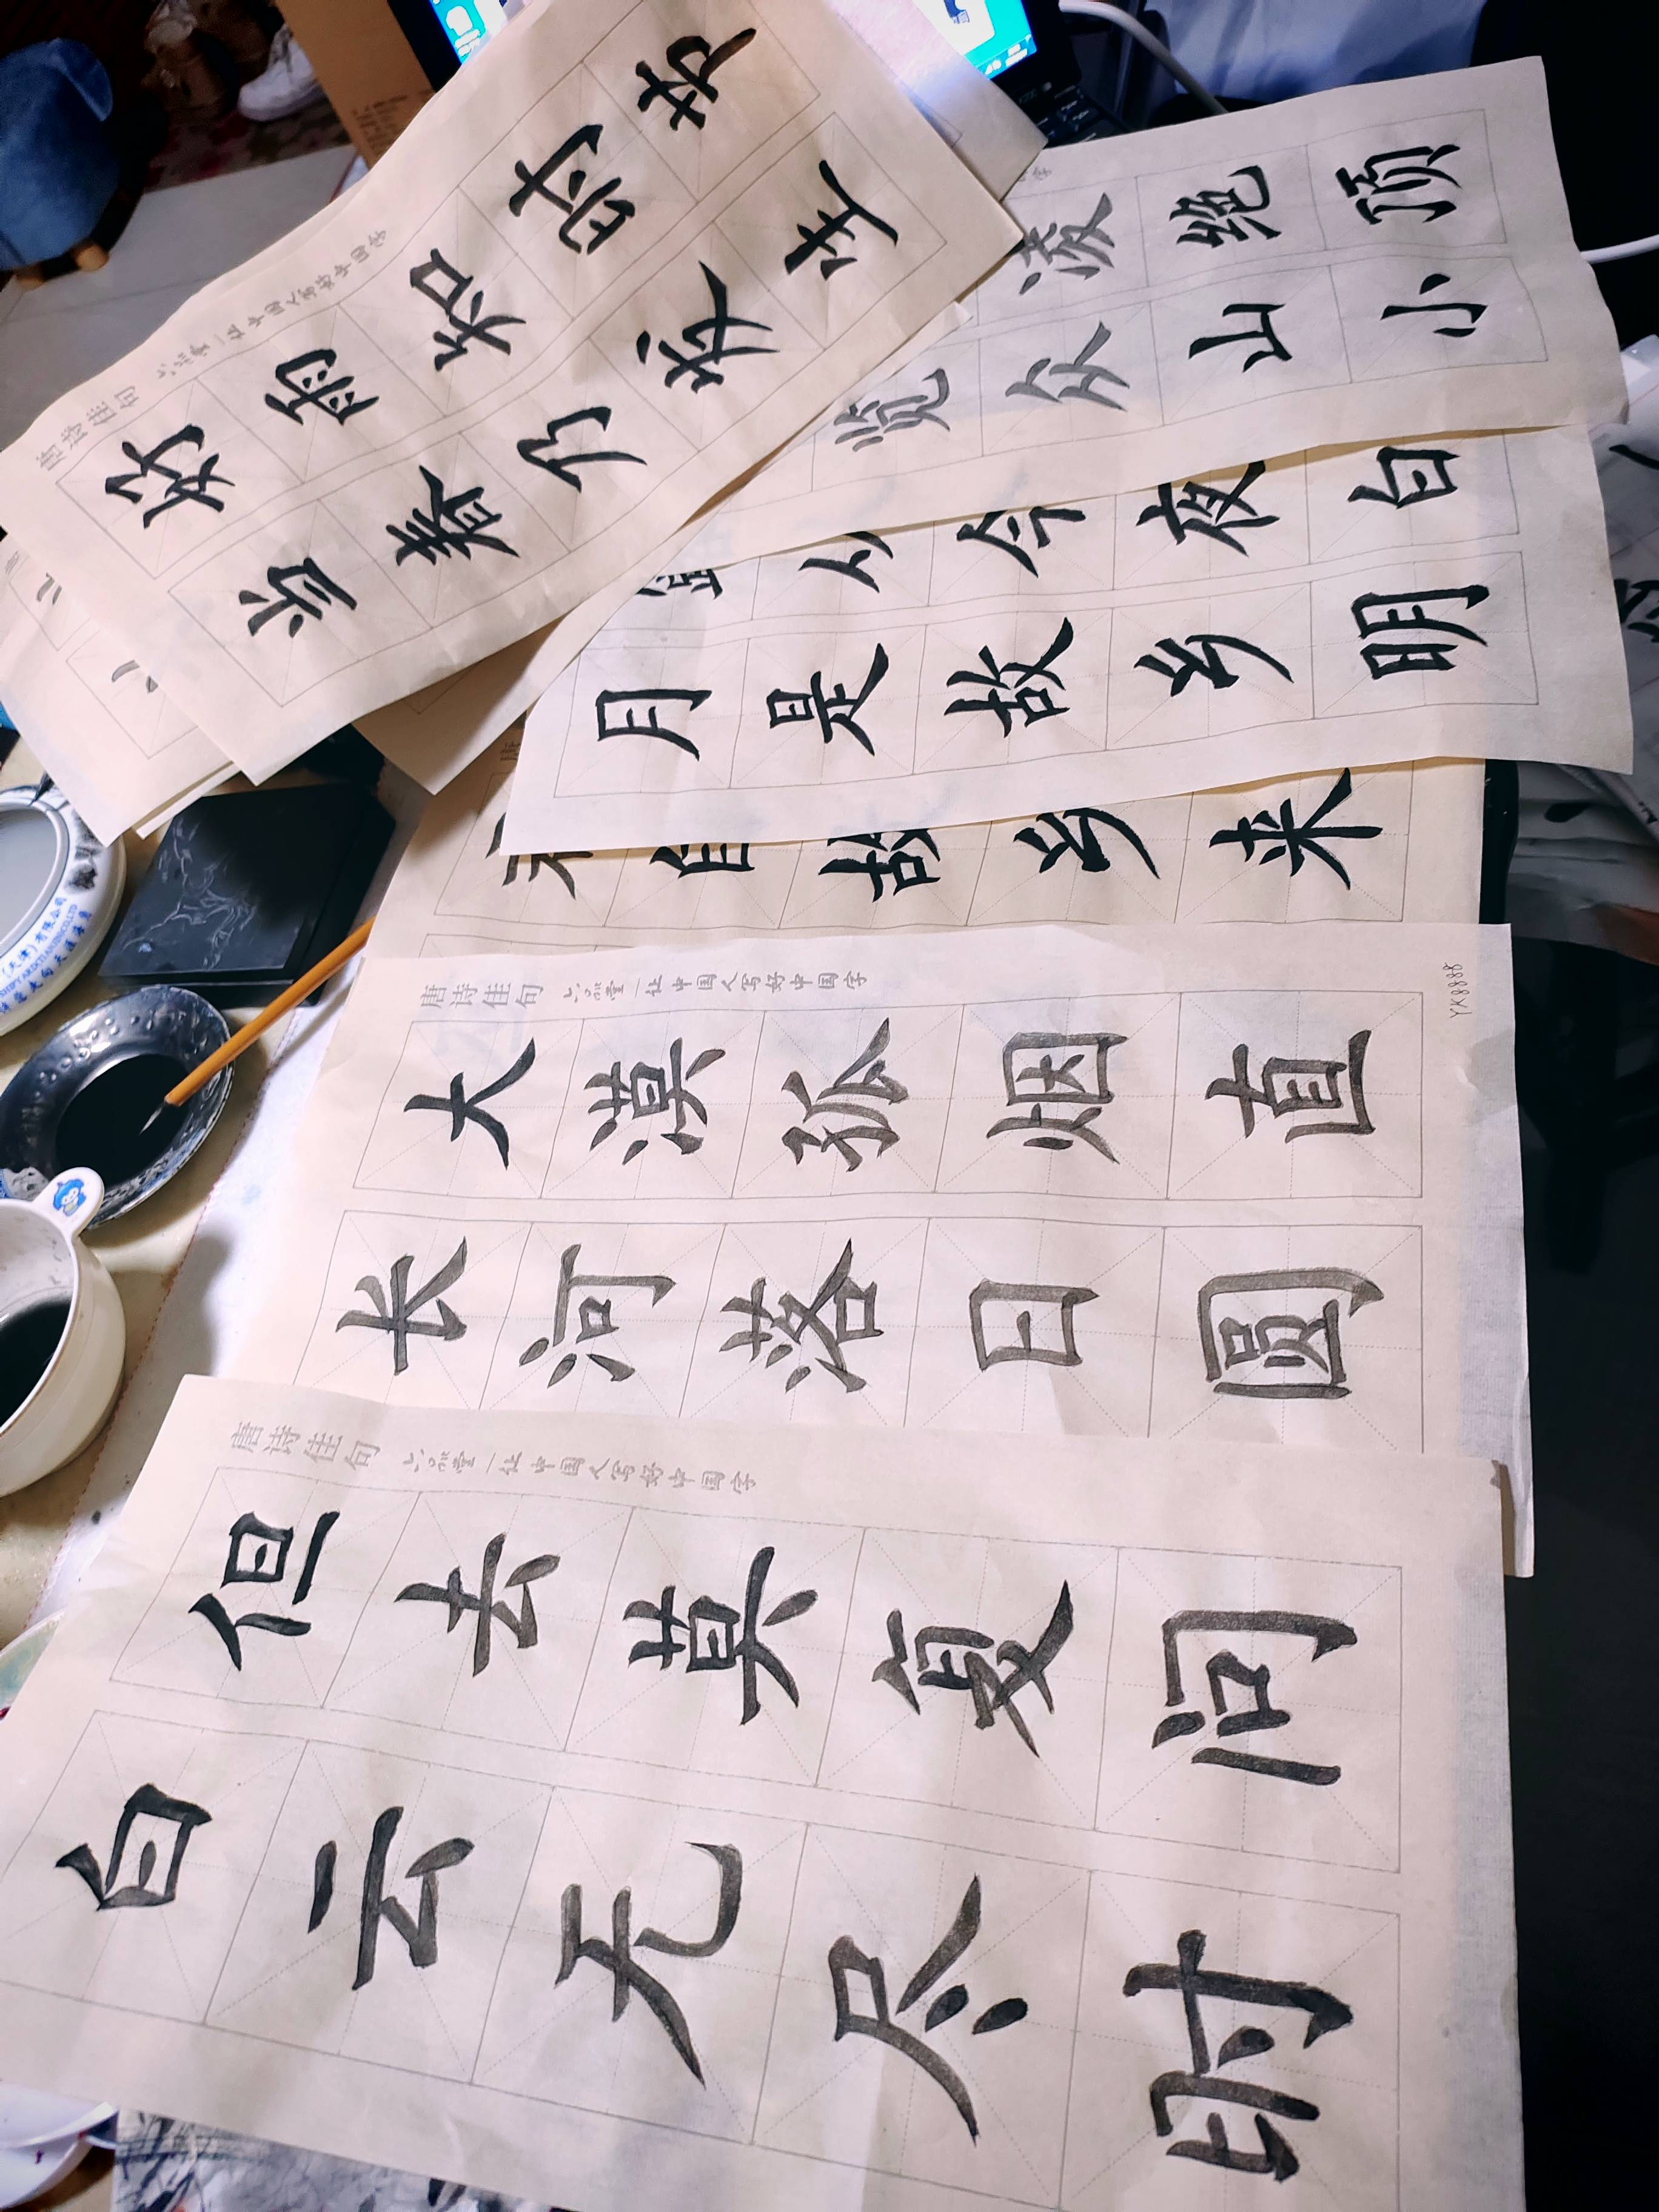 唐诗佳句 六品堂一让中国人写好中国字
好雨知时节
当春乃发生
凌绝顶
览众山小
从今夜白
月是故乡明
自故乡来
唐诗佳句 六品堂一让中国人写好中国字
YX8888
大漠孤烟直
长河落日圓
唐诗佳句 六品堂一让中国人写好中国字
但去莫复问
白云无尽时
(天津)有限公司